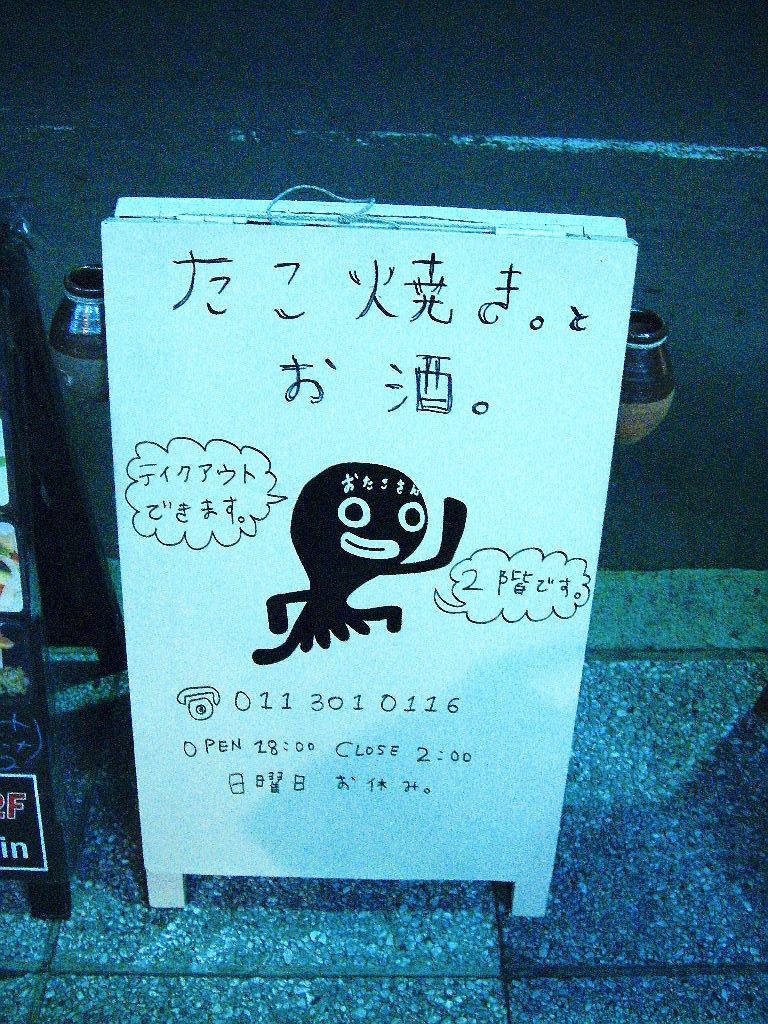 たこ焼き。と
お酒。
テイクアウト
できます。
おたこさん
2階です。
011 301 0116
OPEN 18:00 CLOSE 2:00
日曜日 お休み。
2F
in